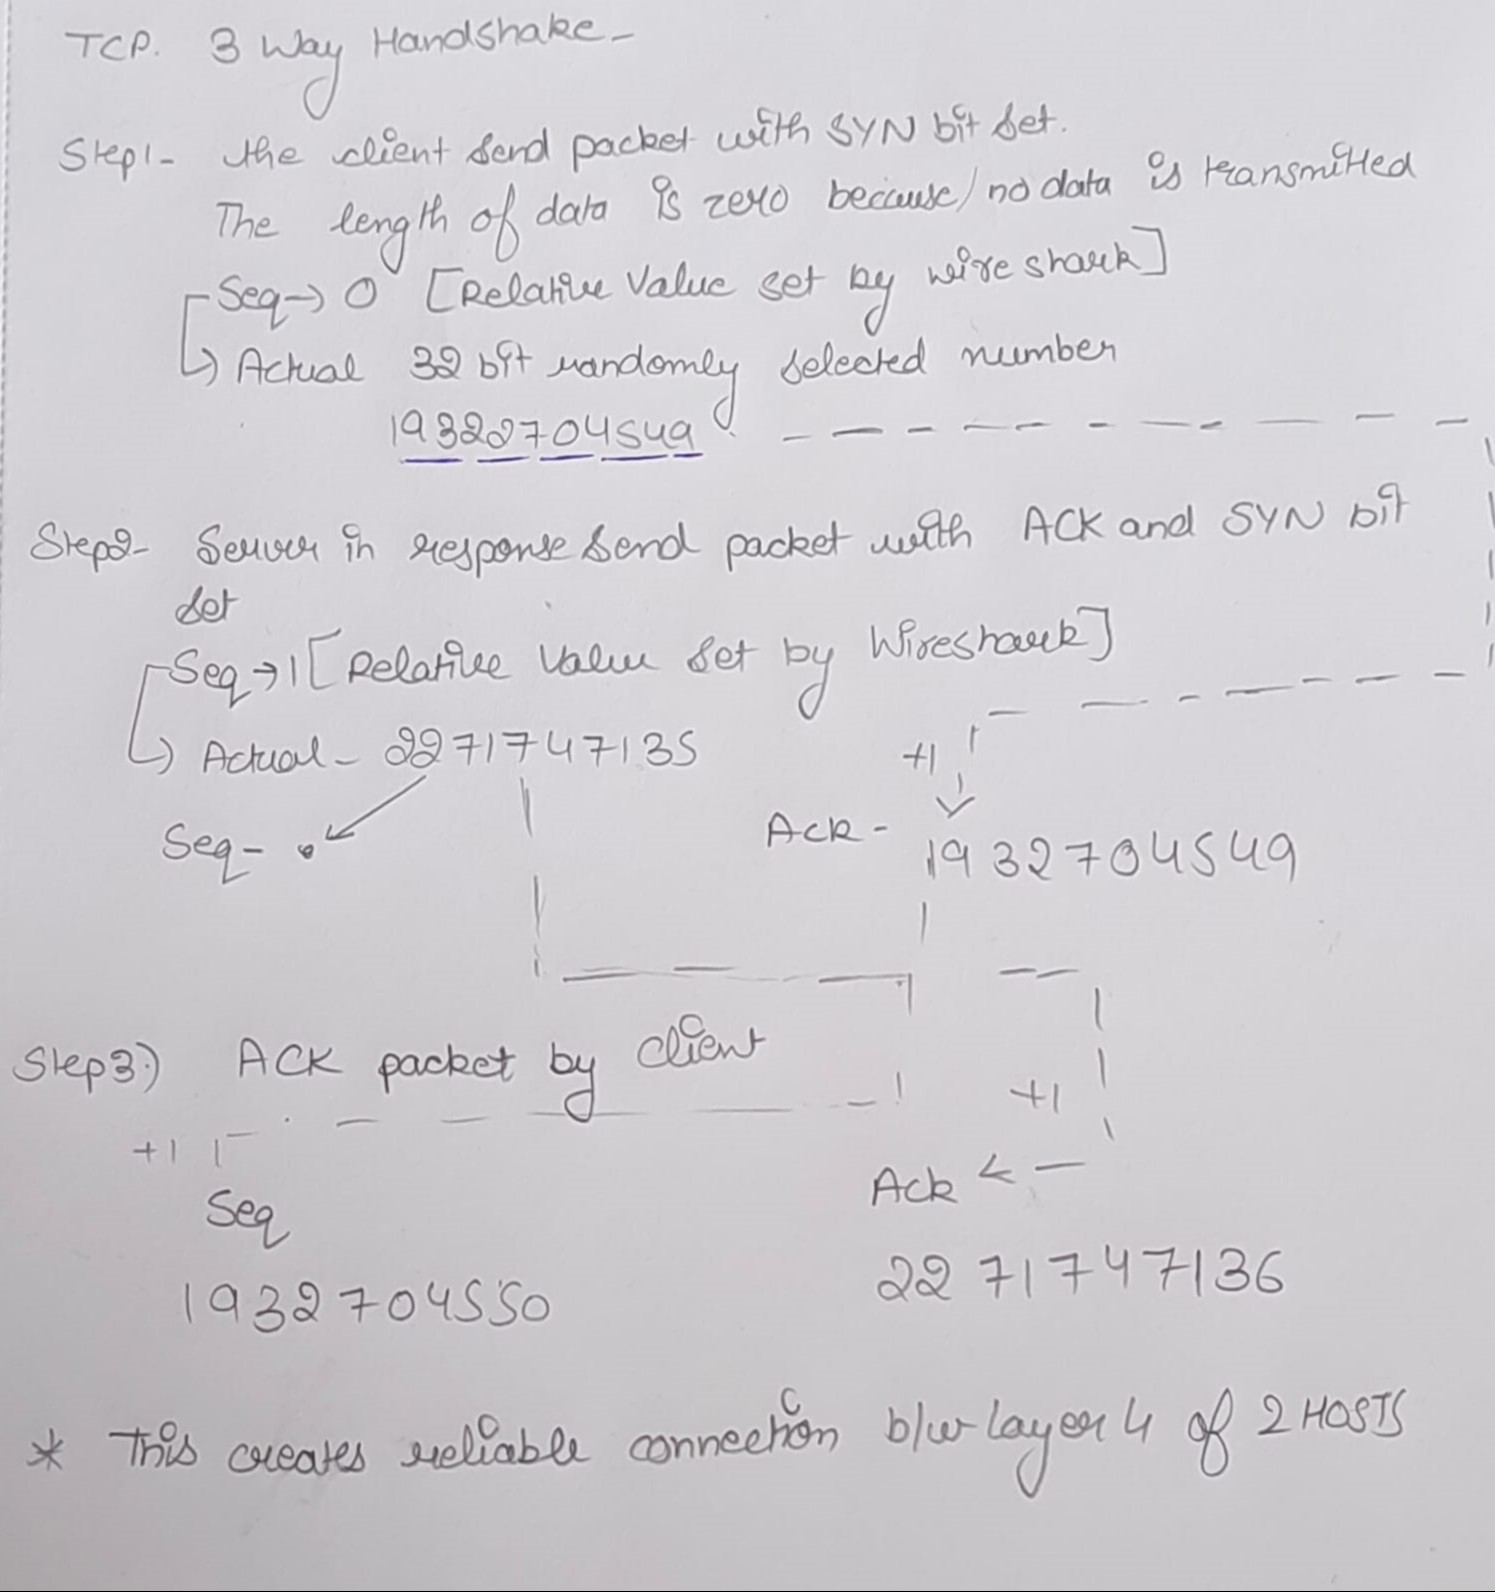 TCP. 3 Way Handshake-
Step1- the client send packet with SYN bit set.
The length of data is zero because/no data is transmitted
Seq→ 0 [Relative Value set by wireshark]
↳ Actual 32 bit randomly selected number
19322704549
Step2- Server in response send packet with ACK and SYN bit
set
Seq→1 [Relative Value set by Wireshark]
↳ Actual- 2271747135
+1
Seq- .
Ack- 1932704549
Step3.) ACK packet by client
+1
+1
Seq
Ack
1932704550
2271747136
* This creates reliable connection b/w layer 4 of 2 HOSTS